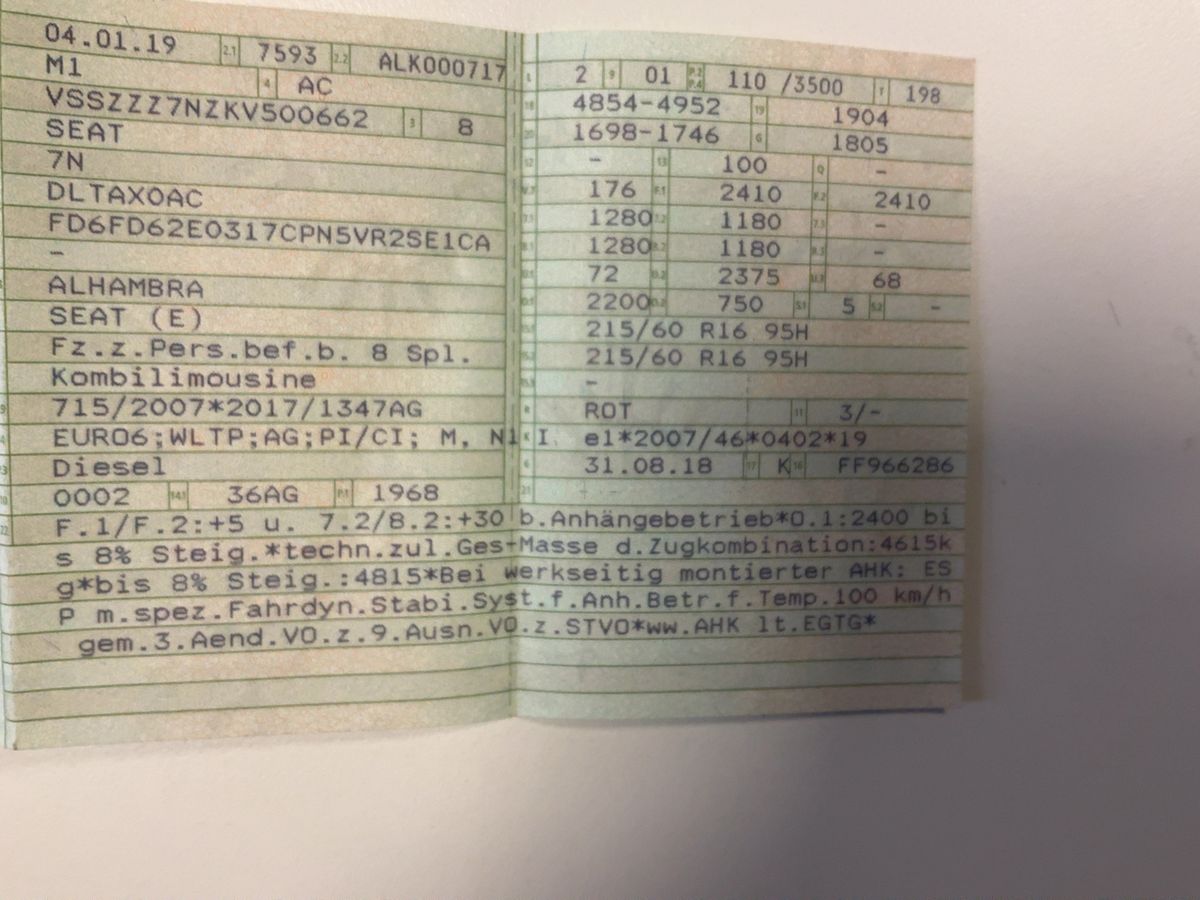 04.01.19 2.1 7593 2.2 ALK000717
M1 4 AC
VSSZZZ7NZKV500662 3 8
SEAT
7N
DLTAX0AC
FD6FD62E0317CPN5VR2SE1CA
–
ALHAMBRA
SEAT (E)
Fz.z.Pers.bef.b. 8 Spl.
Kombilimousine
715/2007*2017/1347AG
EURO6;WLTP;AG;PI/CI; M, N1 I
Diesel
0002 14.1 36AG P.1 1968
L 2 9 01 P.2 P.4 110 /3500 T 198
18 4854-4952 19 1904
20 1698-1746 G 1805
12 – 13 100 Q –
V.7 176 F.1 2410 F.2 2410
7.1 1280 7.2 1180 7.3 –
8.1 1280 8.2 1180 8.3 –
U.1 72 U.2 2375 U.3 68
O.1 2200 O.2 750 S.1 5 S.2 –
15.1 215/60 R16 95H
15.2 215/60 R16 95H
15.3 –
R ROT 11 3/-
K e1*2007/46*0402*19
6 31.08.18 17 K 16 FF966286
21
22 F.1/F.2:+5 u. 7.2/8.2:+30 b.Anhängebetrieb*O.1:2400 bi
s 8% Steig.*techn.zul.Ges-Masse d.Zugkombination:4615k
g*bis 8% Steig.:4815*Bei werkseitig montierter AHK: ES
P m.spez.Fahrdyn.Stabi.Syst.f.Anh.Betr.f.Temp.100 km/h
gem.3.Aend.VO.z.9.Ausn.VO.z.STVO*ww.AHK lt.EGTG*